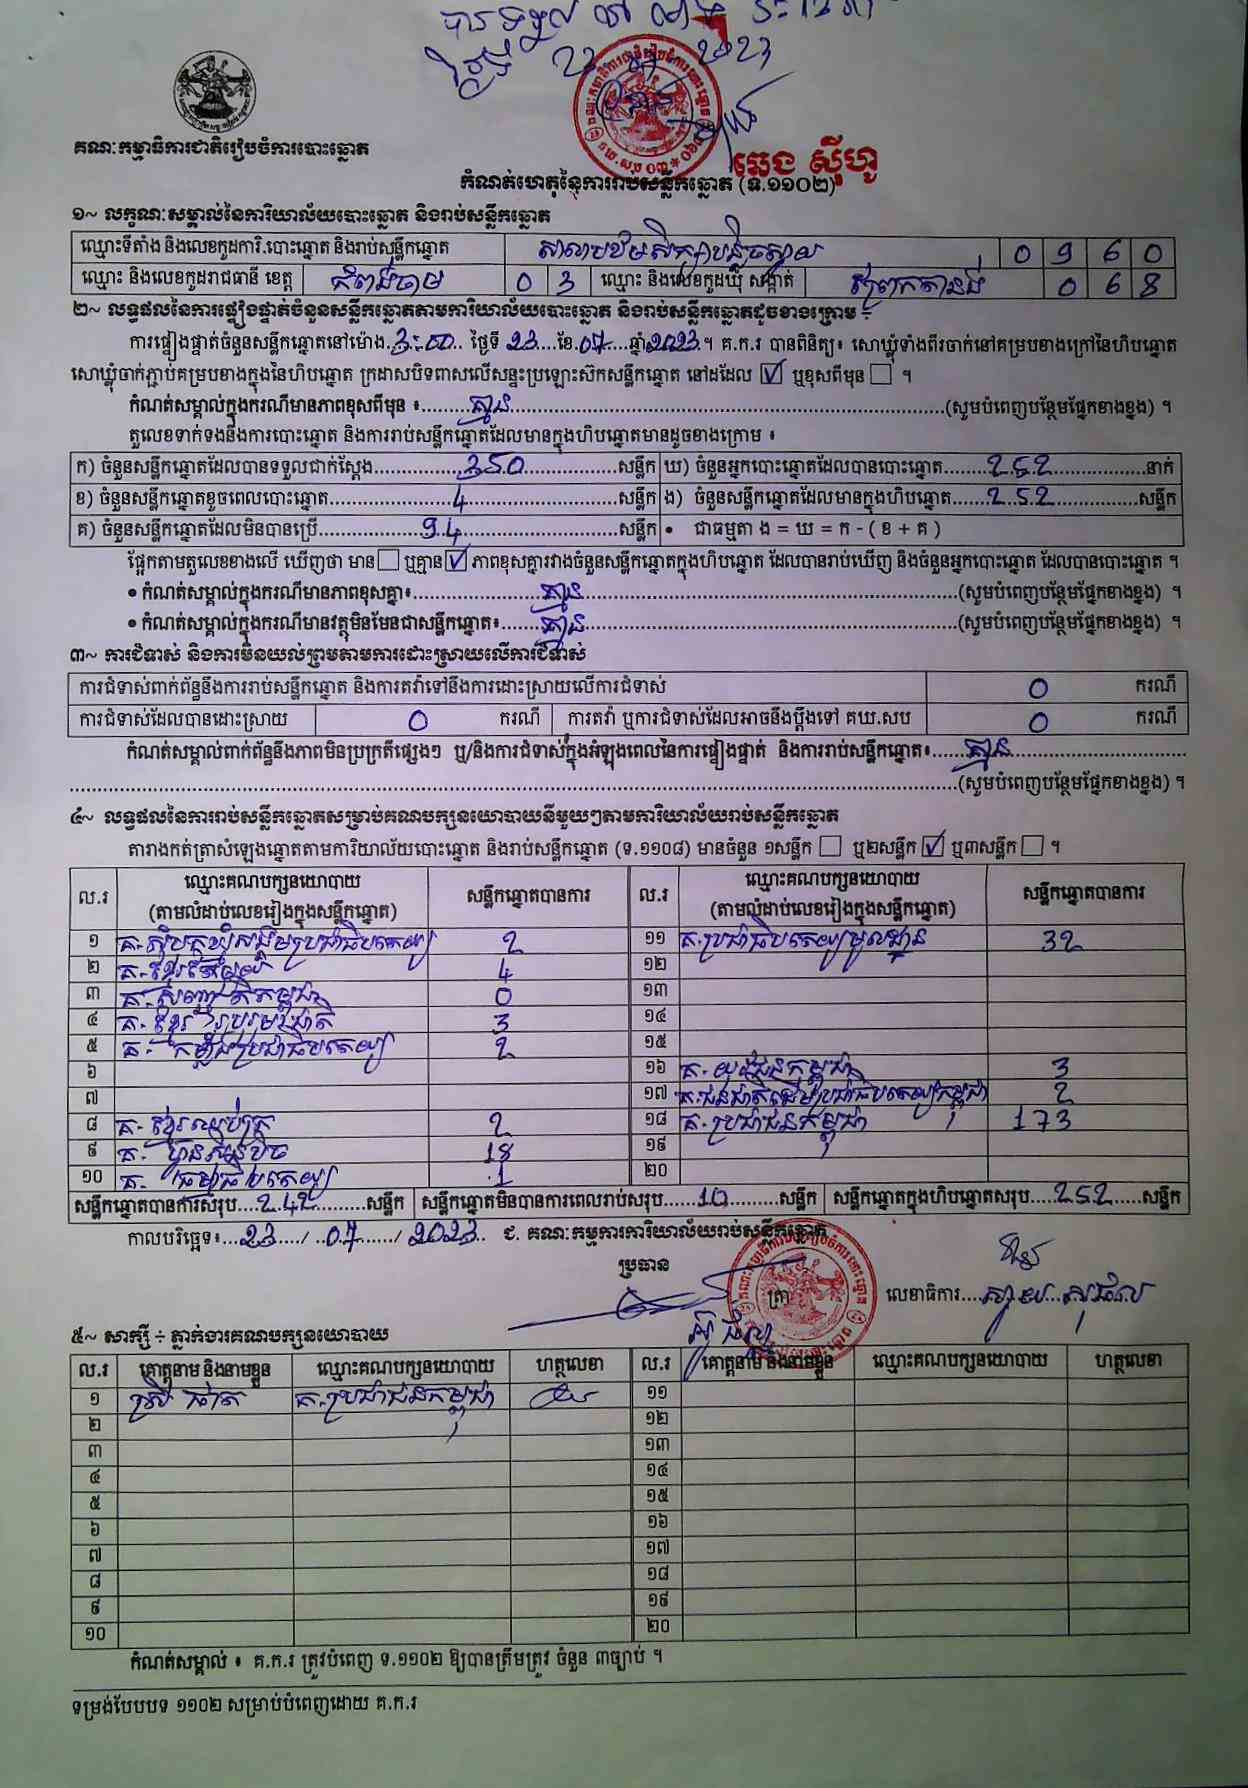 គណៈកម្មាធិការជាតិរៀបចំការបោះឆ្នោត
ឆេង ស៊ីហូ
កំណត់ហេតុនៃការរាប់សន្លឹកឆ្នោត (ទ.១១០២)
១~ លក្ខណៈសម្គាល់នៃការិយាល័យបោះឆ្នោត និងរាប់សន្លឹកឆ្នោត
ឈ្មោះទីតាំង និងលេខកូដការិ.បោះឆ្នោត និងរាប់សន្លឹកឆ្នោត 0 9 6 0
ឈ្មោះ និងលេខកូដរាជធានី ខេត្ត កំពង់ចាម 0 3 ឈ្មោះ និងលេខកូដឃុំ សង្កាត់ 0 6 8
២~ លទ្ធផលនៃការផ្ទៀងផ្ទាត់ចំនួនសន្លឹកឆ្នោតតាមការិយាល័យបោះឆ្នោត និងរាប់សន្លឹកឆ្នោតដូចខាងក្រោម ÷
ការផ្ទៀងផ្ទាត់ចំនួនសន្លឹកឆ្នោតនៅម៉ោង 3:00 ថ្ងៃទី 23 ខែ 07 ឆ្នាំ 2023 ។ គ.ក.រ បានពិនិត្យ៖ សោឃ្លុំទាំងពីរចាក់នៅគម្របខាងក្រៅនៃហិបឆ្នោត
សោឃ្លុំចាក់ភ្ជាប់គម្របខាងក្នុងនៃហិបឆ្នោត ក្រដាសបិទពាសលើសន្ទះប្រឡោះស៊កសន្លឹកឆ្នោត នៅដដែល ☑ ឬខុសពីមុន ☐ ។
កំណត់សម្គាល់ក្នុងករណីមានភាពខុសពីមុន ៖ គ្មាន (សូមបំពេញបន្ថែមផ្នែកខាងខ្នង) ។
តួលេខទាក់ទងនឹងការបោះឆ្នោត និងការរាប់សន្លឹកឆ្នោតដែលមានក្នុងហិបឆ្នោតមានដូចខាងក្រោម ៖
ក) ចំនួនសន្លឹកឆ្នោតដែលបានទទួលជាក់ស្តែង 350 សន្លឹក ឃ) ចំនួនអ្នកបោះឆ្នោតដែលបានបោះឆ្នោត 252 នាក់
ខ) ចំនួនសន្លឹកឆ្នោតខូចពេលបោះឆ្នោត 4 សន្លឹក ង) ចំនួនសន្លឹកឆ្នោតដែលមានក្នុងហិបឆ្នោត 252 សន្លឹក
គ) ចំនួនសន្លឹកឆ្នោតដែលមិនបានប្រើ 94 សន្លឹក • ជាធម្មតា ង = ឃ = ក - ( ខ + គ )
ផ្អែកតាមតួលេខខាងលើ ឃើញថា មាន ☐ ឬគ្មាន ☑ ភាពខុសគ្នារវាងចំនួនសន្លឹកឆ្នោតក្នុងហិបឆ្នោត ដែលបានរាប់ឃើញ និងចំនួនអ្នកបោះឆ្នោត ដែលបានបោះឆ្នោត ។
• កំណត់សម្គាល់ក្នុងករណីមានភាពខុសគ្នា៖ គ្មាន (សូមបំពេញបន្ថែមផ្នែកខាងខ្នង) ។
• កំណត់សម្គាល់ក្នុងករណីមានវត្ថុមិនមែនជាសន្លឹកឆ្នោត៖ គ្មាន (សូមបំពេញបន្ថែមផ្នែកខាងខ្នង) ។
៣~ ការជំទាស់ និងការមិនយល់ព្រមតាមការដោះស្រាយលើការជំទាស់
ការជំទាស់ពាក់ព័ន្ធនឹងការរាប់សន្លឹកឆ្នោត និងការតវ៉ាទៅនឹងការដោះស្រាយលើការជំទាស់ 0 ករណី
ការជំទាស់ដែលបានដោះស្រាយ 0 ករណី ការតវ៉ា ឬការជំទាស់ដែលអាចនឹងប្តឹងទៅ គឃ.សប 0 ករណី
កំណត់សម្គាល់ពាក់ព័ន្ធនឹងភាពមិនប្រក្រតីផ្សេងៗ ឬ/និងការជំទាស់ក្នុងអំឡុងពេលនៃការផ្ទៀងផ្ទាត់ និងការរាប់សន្លឹកឆ្នោត៖ គ្មាន
(សូមបំពេញបន្ថែមផ្នែកខាងខ្នង) ។
៤~ លទ្ធផលនៃការរាប់សន្លឹកឆ្នោតសម្រាប់គណបក្សនយោបាយនីមួយៗតាមការិយាល័យរាប់សន្លឹកឆ្នោត
តារាងកត់ត្រាសំឡេងឆ្នោតតាមការិយាល័យបោះឆ្នោត និងរាប់សន្លឹកឆ្នោត (ទ.១១០៨) មានចំនួន ១សន្លឹក ☐ ឬ២សន្លឹក ☑ ឬ៣សន្លឹក ☐ ។
ល.រ ឈ្មោះគណបក្សនយោបាយ (តាមលំដាប់លេខរៀងក្នុងសន្លឹកឆ្នោត) សន្លឹកឆ្នោតបានការ ល.រ ឈ្មោះគណបក្សនយោបាយ (តាមលំដាប់លេខរៀងក្នុងសន្លឹកឆ្នោត) សន្លឹកឆ្នោតបានការ
១ គ. សំបុកឃ្មុំសង្គមប្រជាធិបតេយ្យ 2 ១១ គ.ប្រជាធិបតេយ្យមូលដ្ឋាន 32
២ គ. ខ្មែរតែមួយ 4 ១២
៣ គ. សញ្ជាតិកម្ពុជា 0 ១៣
៤ គ. ខ្មែររួបរួមជាតិ 3 ១៤
៥ គ. កម្លាំងប្រជាធិបតេយ្យ 2 ១៥
៦ ១៦ គ. យុវជនកម្ពុជា 3
៧ ១៧ គ.ជនជាតិដើមប្រជាធិបតេយ្យកម្ពុជា 2
៨ គ. ខ្មែរឈប់ក្រ 2 ១៨ គ. ប្រជាជនកម្ពុជា 173
៩ គ. ហ្វ៊ុនស៊ិនប៉ិច 18 ១៩
១០ គ. ធម្មាធិបតេយ្យ 1 ២០
សន្លឹកឆ្នោតបានការសរុប 242 សន្លឹក សន្លឹកឆ្នោតមិនបានការពេលរាប់សរុប 10 សន្លឹក សន្លឹកឆ្នោតក្នុងហិបឆ្នោតសរុប 252 សន្លឹក
កាលបរិច្ឆេទ៖ 23 / 07 / 2023 ជ. គណៈកម្មការការិយាល័យរាប់សន្លឹកឆ្នោត
ប្រធាន
ត្រា លេខាធិការ
៥~ សាក្សី ÷ ភ្នាក់ងារគណបក្សនយោបាយ
ល.រ គោត្តនាម និងនាមខ្លួន ឈ្មោះគណបក្សនយោបាយ ហត្ថលេខា ល.រ គោត្តនាម និងនាមខ្លួន ឈ្មោះគណបក្សនយោបាយ ហត្ថលេខា
១ គ.ប្រជាជនកម្ពុជា ១១
២ ១២
៣ ១៣
៤ ១៤
៥ ១៥
៦ ១៦
៧ ១៧
៨ ១៨
៩ ១៩
១០ ២០
កំណត់សម្គាល់ ៖ គ.ក.រ ត្រូវបំពេញ ទ.១១០២ ឱ្យបានត្រឹមត្រូវ ចំនួន ៣ច្បាប់ ។
ទម្រង់បែបបទ ១១០២ សម្រាប់បំពេញដោយ គ.ក.រ